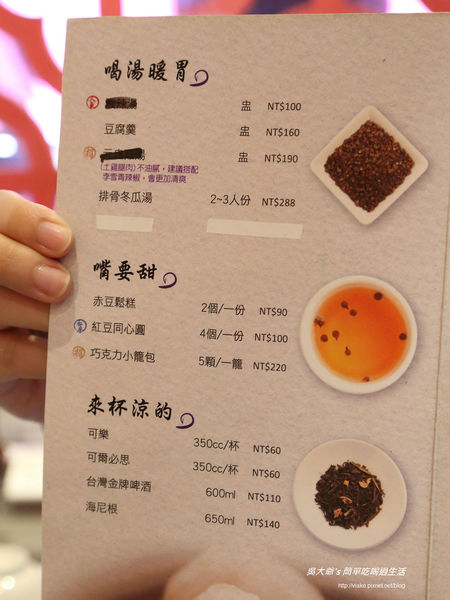 喝湯暖胃
盅 NT$100
豆腐羹 盅 NT$160
湯 盅 NT$190
(土雞腿肉)不油膩,建議搭配
李雪青辣椒,會更加清爽
排骨冬瓜湯 2~3人份 NT$288
嘴要甜
赤豆鬆糕 2個/一份 NT$90
紅豆同心圓 4個/一份 NT$100
巧克力小籠包 5顆/一籠 NT$220
來杯涼的
可樂 350cc/杯 NT$60
可爾必思 350cc/杯 NT$60
台灣金牌啤酒 600ml NT$110
海尼根 650ml NT$140
吳大爺's 簡單吃喝過生活
http://viako.pixnet.net/blog